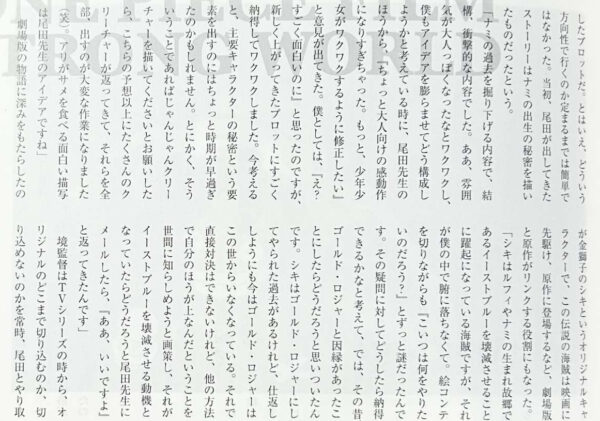 したプロットだ。とはいえ、どういう
方向性で行くのか定まるまでは簡単で
はなかった。当初、尾田が出してきた
ストーリーはナミの出生の秘密を描い
たものだったという。
「ナミの過去を掘り下げる内容で、結
構、衝撃的な内容でした。ああ、雰囲
気が大人っぽくなったなとワクワクし、
僕もアイデアを膨らませてどう構成し
ようかと考えている時に、尾田先生の
ほうから、『ちょっと大人向けの感動作
になりすぎちゃった。もっと、少年少
女がワクワクするように修正したい』
と意見が出てきた。僕としては、『え？
すごく面白いのに』と思ったのですが、
新しく上がってきたプロットにすごく
納得してワクワクしました。今考える
と、主要キャラクターの秘密という要
素を出すのにはちょっと時期が早過ぎ
たのかもしれません。とにかく、そう
いうことであればじゃんじゃんクリー
チャーを描いてくださいとお願いした
ら、こちらの予想以上にたくさんのク
リーチャーが返ってきて、それらを全
部、出すのが大変な作業になりました
（笑）。アリがサメを食べる面白い描写
は尾田先生のアイデアですね」
劇場版の物語に深みをもたらしたの
が金獅子のシキというオリジナルキャ
ラクターで、この伝説の海賊は映画に
先駆け、原作に登場するなど、劇場版
と原作がリンクする役割にもなった。
「シキはルフィやナミの生まれ故郷で
あるイーストブルーを壊滅させること
に躍起になっている海賊ですが、それ
が僕の中で腑に落ちなくて。絵コンテ
を切りながらも『こいつは何をやりた
いのだろう？』とずっと謎だったんで
す。その疑問に対してどうしたら納得
できるかなと考えて、では、その昔
ゴールド・ロジャーと因縁があったこ
とにしたらどうだろうと思いついたん
です。シキはゴールド・ロジャーにし
てやられた過去があるけれど、仕返し
しようにも今はゴールド・ロジャーは
この世からいなくなっている。それで
直接対決はできないけれど、他の方法
で自分のほうが上なんだということを
世間に知らしめようと画策し、それが
イーストブルーを壊滅させる動機と
なっていたらどうだろうと尾田先生に
メールしたら、『ああ、いいですよ』
と返ってきたんです」
境監督はTVシリーズの時から、オ
リジナルのどこまで切り込むのか、切
り込めないのかを常時、尾田とやり取